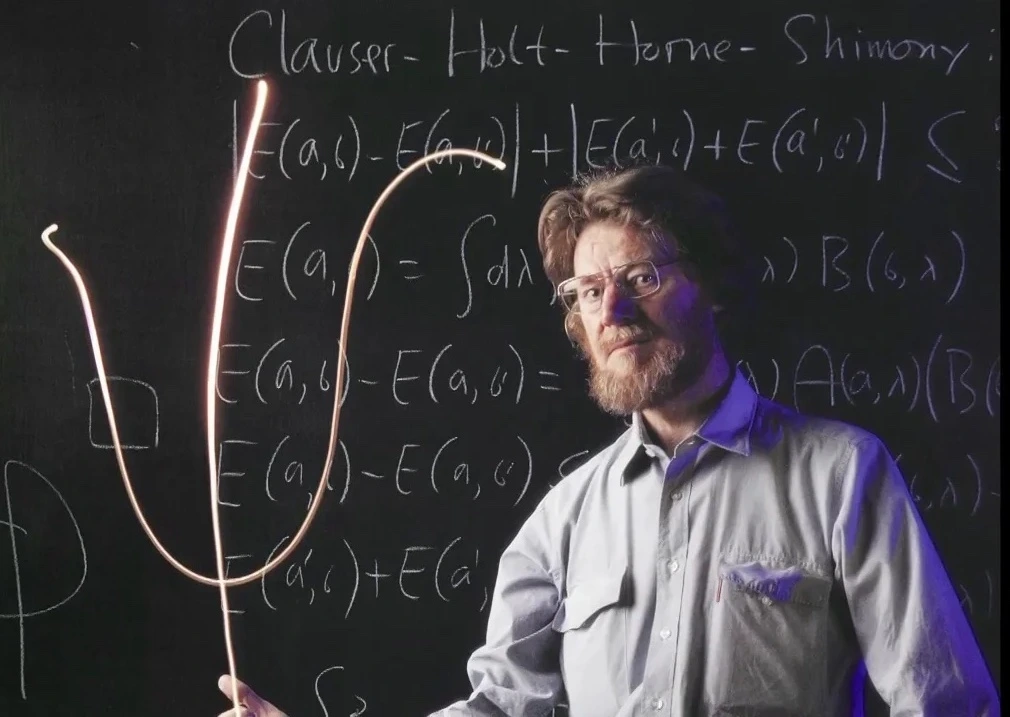 Clauser-Holt-Horne-Shimony:
|E(a,b)-E(a,b')|+|E(a',b)+E(a',b')| ≤
E(a, ) = ∫dλ λ) B(b,λ)
E(a,b)-E(a,b') = λ) A(a,λ)(B(
E(a, )-E(a,b') ≤ ,λ)-
E(a',b)+E(a', λ)
∫
ψ